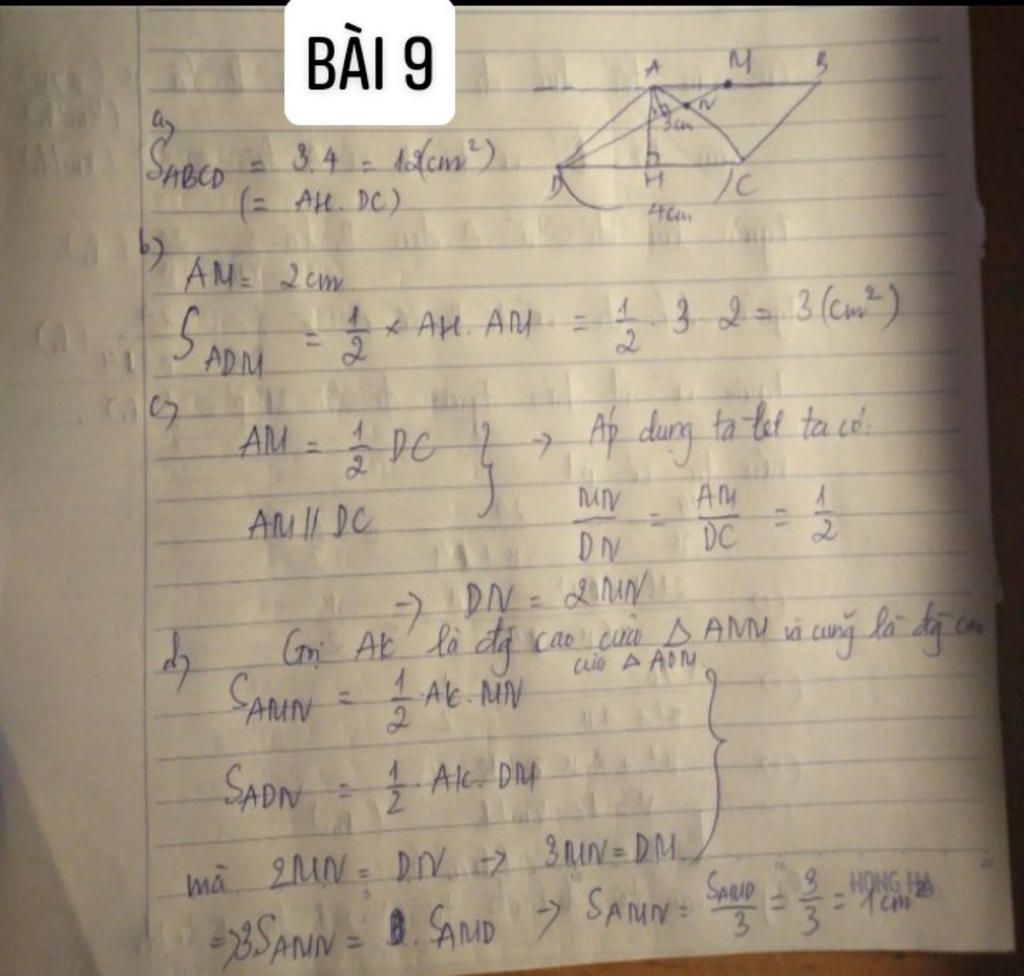 BÀI 9
A M B
N
3cm
D H C
4cm
a)
S ABCD = 3.4 = 12(cm²)
(= AH. DC)
b)
AM = 2cm
S ADM = 1/2 × AH. AM = 1/2 . 3 . 2 = 3 (cm²)
c)
AM = 1/2 DC } → Áp dụng ta let ta có:
AM // DC
MN/DN = AM/DC = 1/2
→ DN = 2MN
d) Gọi AK là đg cao của △ AMN và cũng là đg cao
của △ ADM
S AMN = 1/2 AK. MN
S ADN = 1/2 . AK. DM }
mà 2MN = DN → 3MN = DM
=> 3S AMN = S AMD → S AMN = S AMD/3 = 3/3 = 1cm²
HONG HA